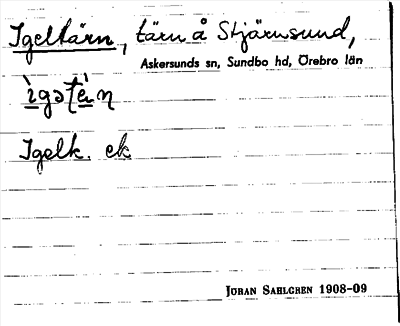 Igeltärn, tärn å Stjärnsund,
Askersunds sn, Sundbo hd, Örebro län
ìgətä̀ɳ
Igelk. ek
JÖRAN SAHLGREN 1908-09